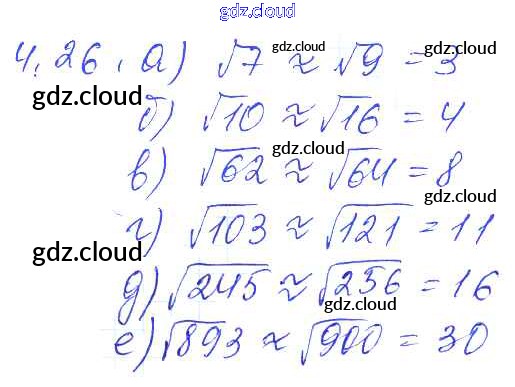 gdz.cloud
4.26. а) √7 ≈ √9 = 3
gdz.cloud
gdz.cloud
gdz.cloud
б) √10 ≈ √16 = 4
gdz.cloud
gdz.cloud
в) √62 ≈ √64 = 8
gdz.cloud
г) √103 ≈ √121 = 11
gdz.cloud
gdz.cloud
д) √245 ≈ √256 = 16
gdz.cloud
е) √893 ≈ √900 = 30